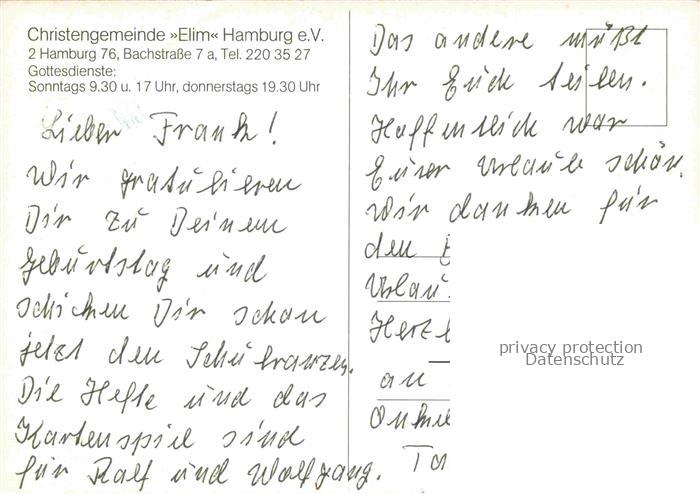 Christengemeinde »Elim« Hamburg e.V.
2 Hamburg 76, Bachstraße 7 a, Tel. 220 35 27
Gottesdienste:
Sonntags 9.30 u. 17 Uhr, donnerstags 19.30 Uhr
Lieber Frank!
Wir gratulieren
Dir zu Deinem
Geburtstag und
schicken Dir schon
jetzt den Schulranzen.
Die Hefte und das
Kartenspiel sind
für Ralf und Wolfgang.
Das andere müßt
Ihr Euch teilen.
Hoffentlich war
Eurer Urlaub schön.
Wir danken für
den
Urlau
Herzl
an
Onke
Ta
privacy protection
Datenschutz